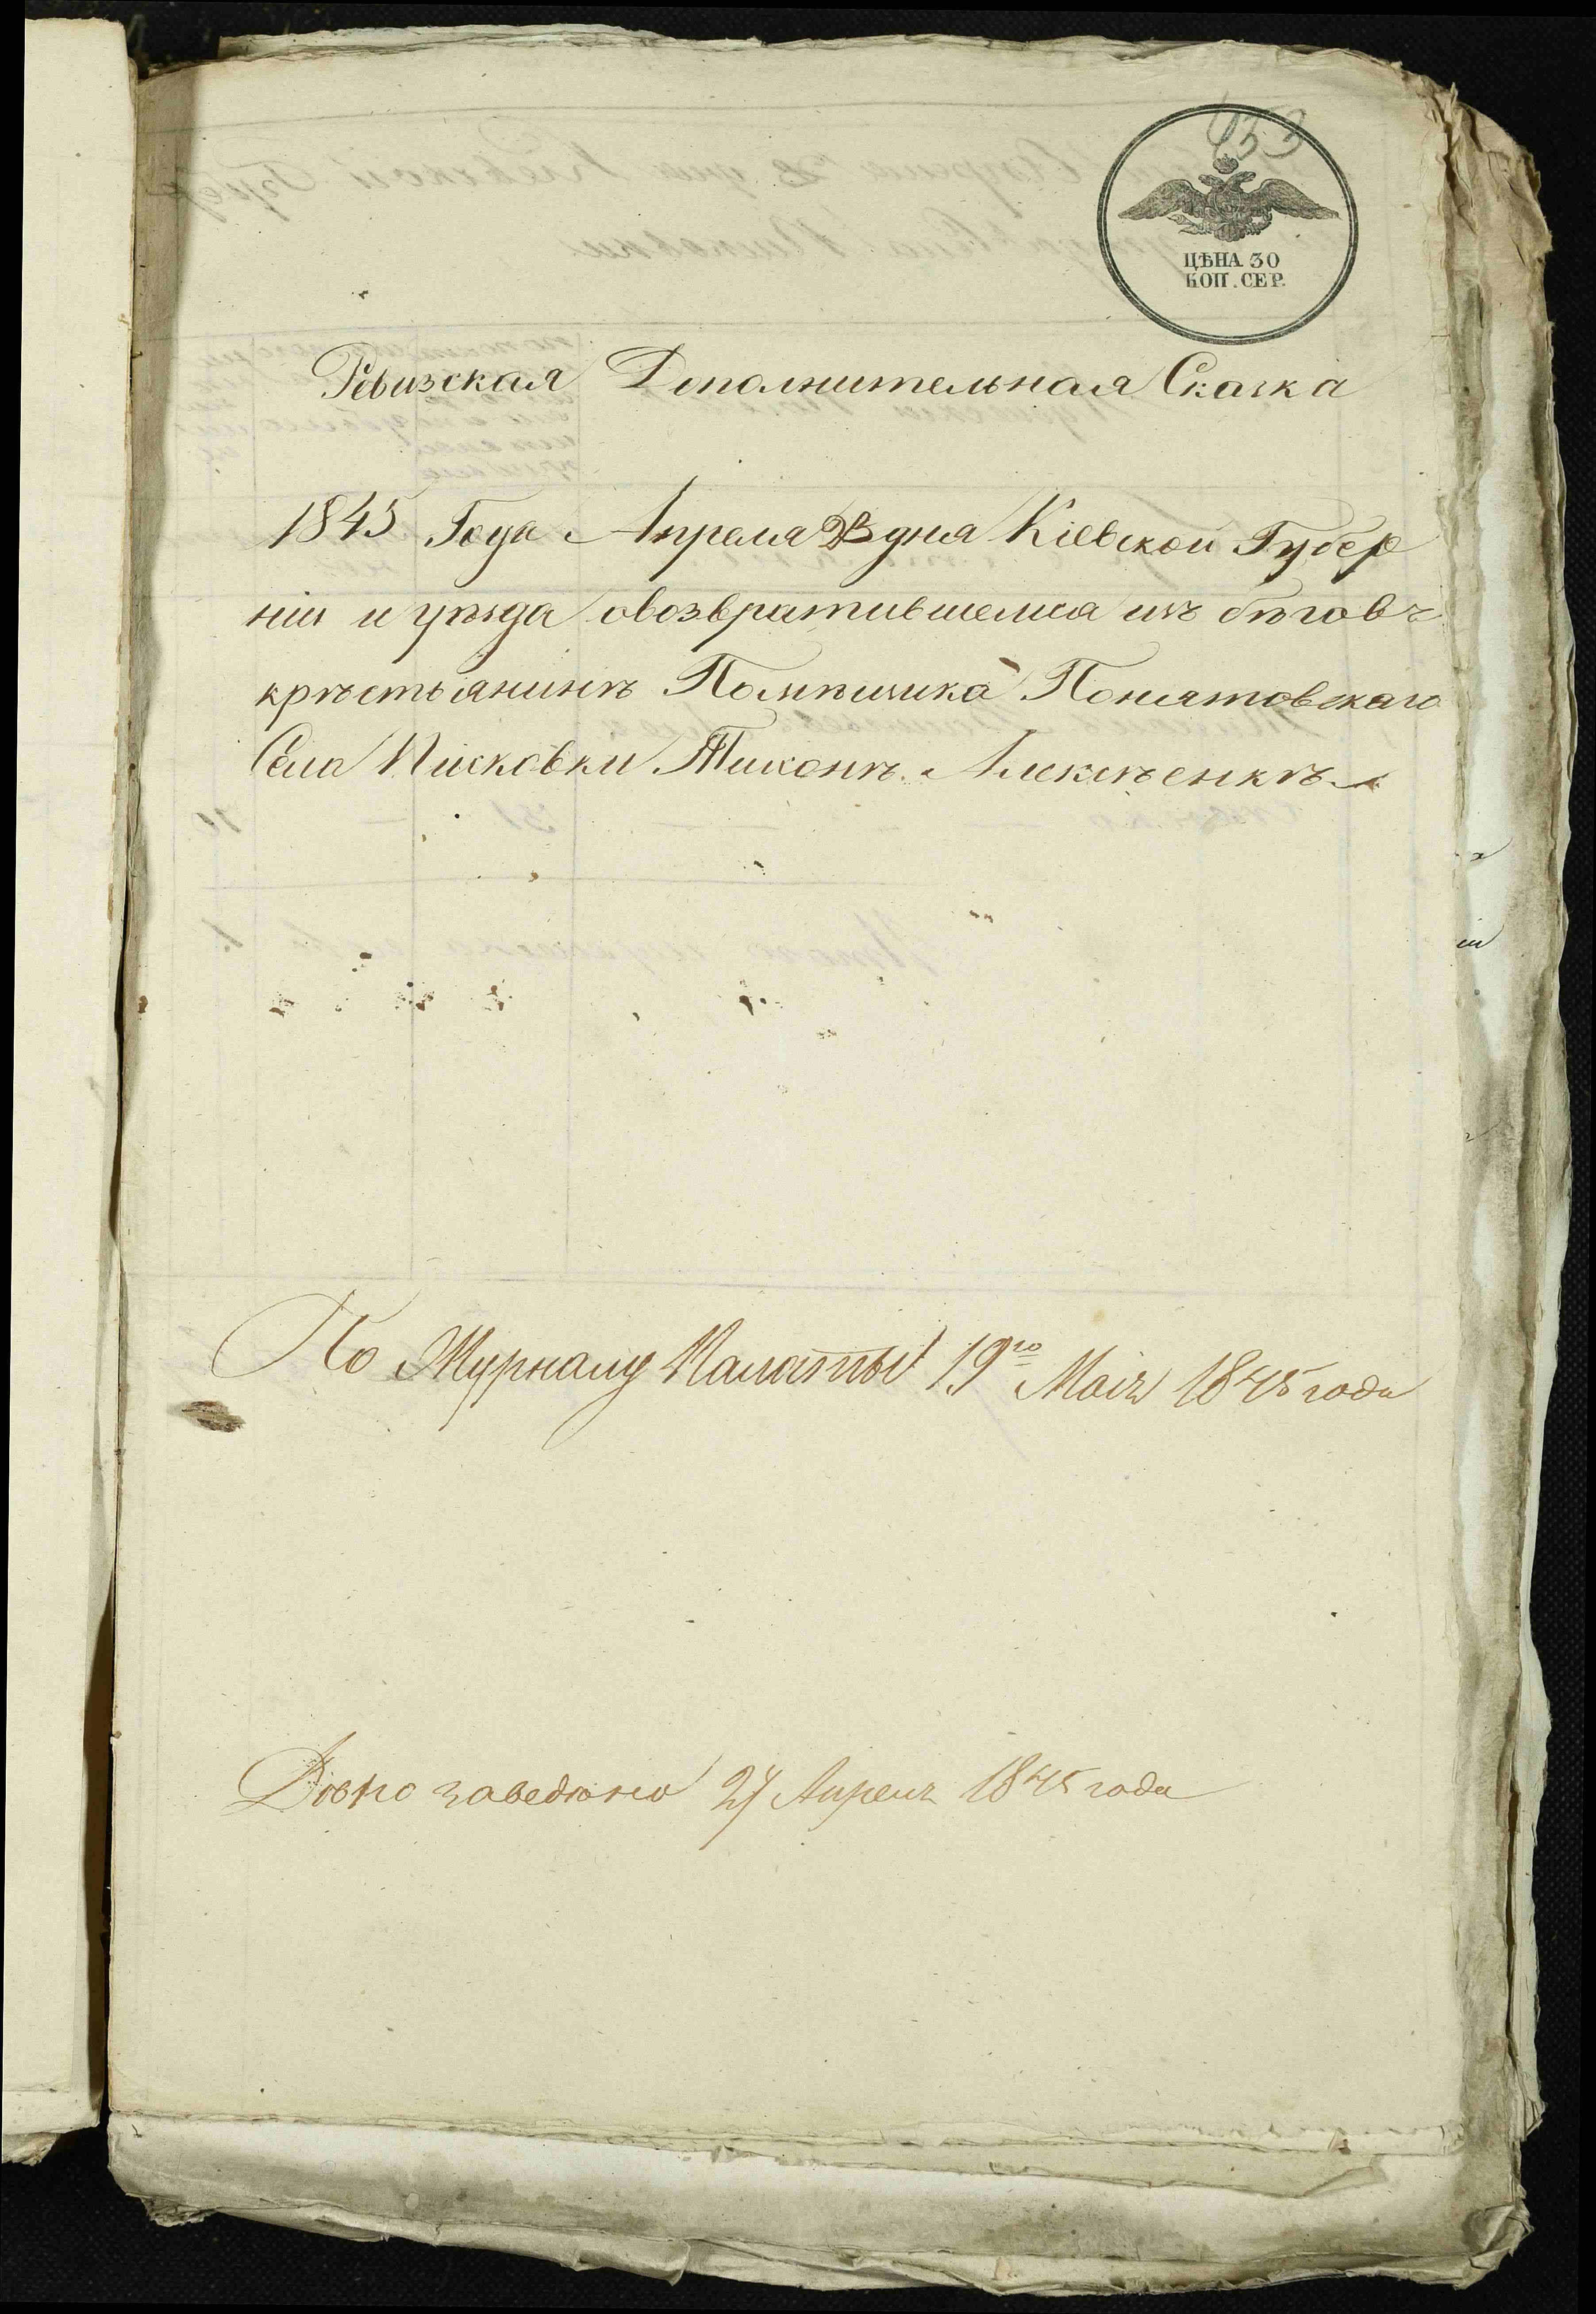 453
ЦѢНА 30
КОП. СЕР.
Ревизская Дополнительная Скаска
1845 Года Апреля дня Кіевской Губер
ніи и уѣзда овозвратившемся изъ бѣговъ
крѣстьянинѣ Помѣщика Понятовскаго
Села Писковки Тихонѣ Алексѣенкѣ
По Журналу Палаты 19го Маія 1845 года
24 Апреля 1845 года